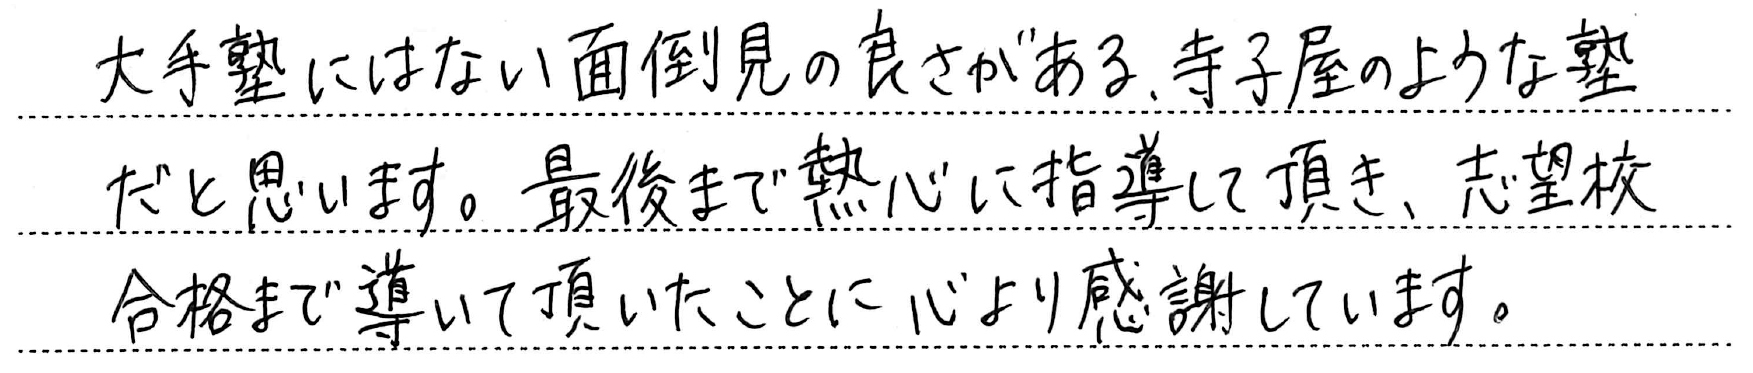 大手塾にはない面倒見の良さがある、寺子屋のような塾
だと思います。最後まで熱心に指導して頂き、志望校
合格まで導いて頂いたことに心より感謝しています。